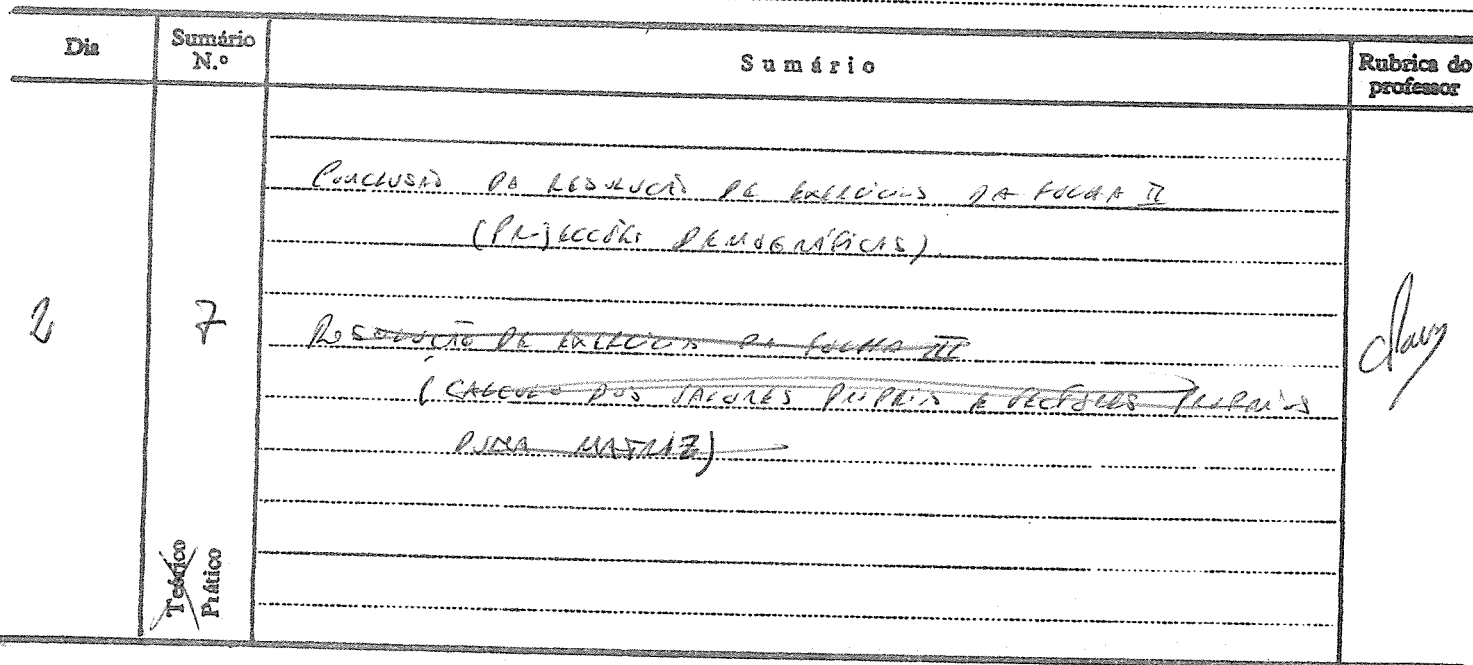 Dia Sumário N.º Sumário Rubrica do professor
CONCLUSÃO DA RESOLUÇÃO DE EXERCÍCIOS DA FOLHA II
(PROJECÇÕES DEMOGRÁFICAS)
2 7 RESOLUÇÃO DE EXERCÍCIOS DA FOLHA III
(CALCULO DOS VALORES PROPRIOS E VECTORES PROPRIOS
DUMA MATRIZ)
Teórico
Prático